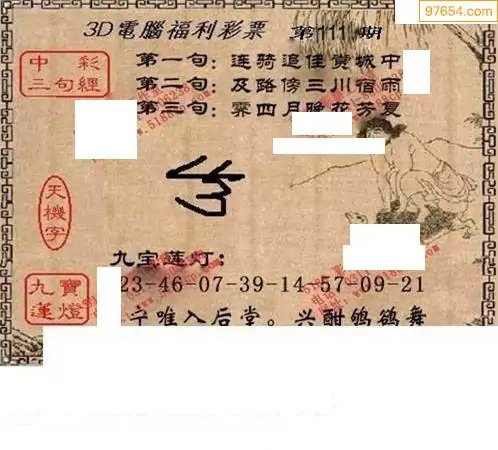 97654.com
3D電腦福利彩票 第111期
中彩
三句經
第一句：连骑追佳赏城中
第二句：及路傍三川宿雨
第三句：霁四月晚花芳夏
天機字
九宝莲灯：
九寶蓮燈
23-46-07-39-14-57-09-21
宁唯入后堂。兴酣鸲鹆舞